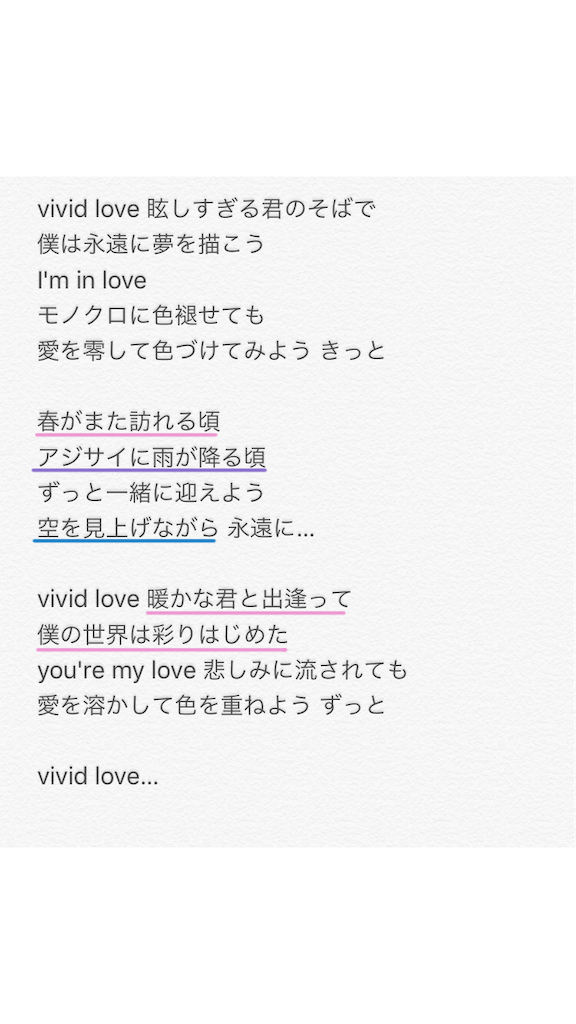 vivid love 眩しすぎる君のそばで
僕は永遠に夢を描こう
I'm in love
モノクロに色褪せても
愛を零して色づけてみよう きっと
春がまた訪れる頃
アジサイに雨が降る頃
ずっと一緒に迎えよう
空を見上げながら 永遠に...
vivid love 暖かな君と出逢って
僕の世界は彩りはじめた
you're my love 悲しみに流されても
愛を溶かして色を重ねよう ずっと
vivid love...